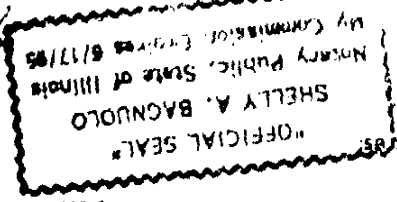 "OFFICIAL SEAL"
SHELLY A. BAGNUOLO
Notary Public, State of Illinois
My Commission Expires 6/17/95